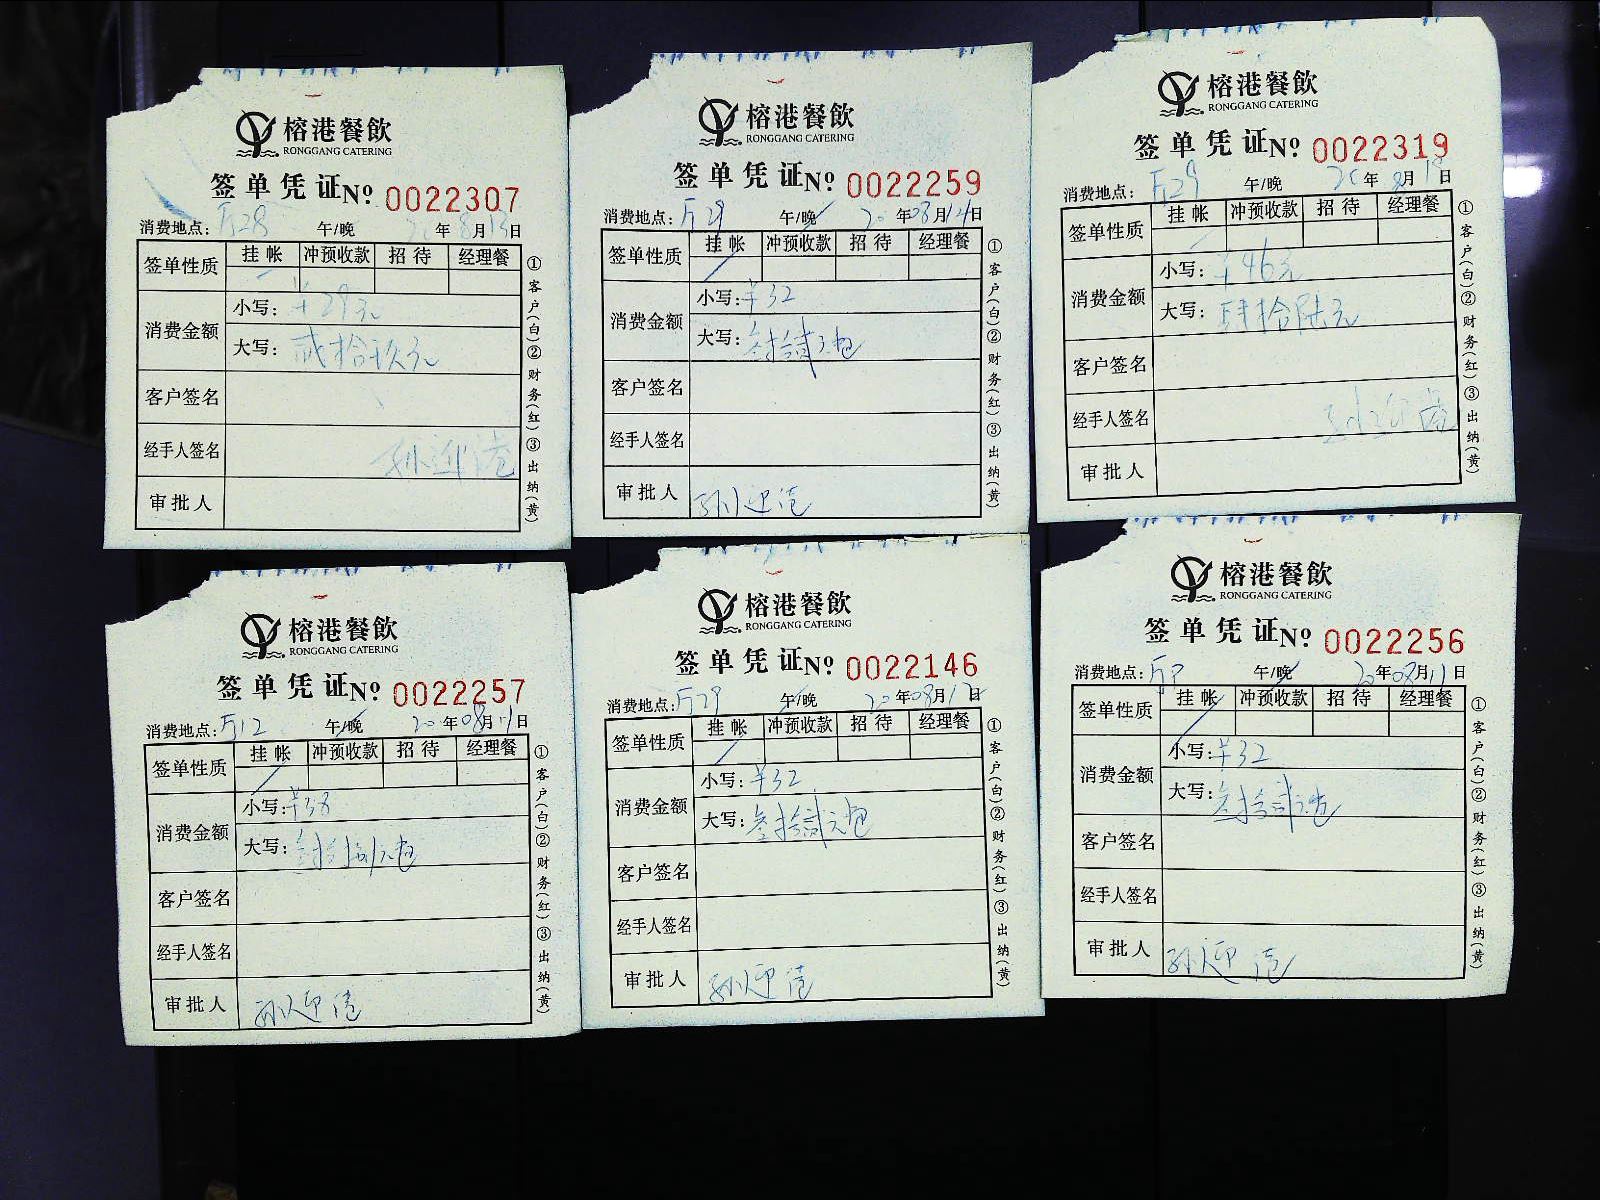 榕港餐飲
RONGGANG CATERING
签单凭证№ 0022307
消费地点: 厅28 午/晚 20年8月13日
签单性质 挂帐 冲预收款 招待 经理餐
消费金额
小写: ¥29元
大写: 贰拾玖元
客户签名
经手人签名 孙迎港
审批人
①客户(白)②财务(红)③出纳(黄)
榕港餐飲
RONGGANG CATERING
签单凭证№ 0022259
消费地点: 厅29 午/晚 20年08月14日
签单性质 挂帐 冲预收款 招待 经理餐
消费金额
小写: ¥32
大写: 叁拾贰元
客户签名
经手人签名
审批人 孙迎港
①客户(白)②财务(红)③出纳(黄)
榕港餐飲
RONGGANG CATERING
签单凭证№ 0022319
消费地点: 厅29 午/晚 20年8月日
签单性质 挂帐 冲预收款 招待 经理餐
消费金额
小写: ¥46元
大写: 肆拾陆元
客户签名
经手人签名 孙迎港
审批人
①客户(白)②财务(红)③出纳(黄)
榕港餐飲
RONGGANG CATERING
签单凭证№ 0022257
消费地点: 厅12 午/晚 20年08月11日
签单性质 挂帐 冲预收款 招待 经理餐
消费金额
小写: ¥38
大写: 叁拾捌元
客户签名
经手人签名
审批人 孙迎港
①客户(白)②财务(红)③出纳(黄)
榕港餐飲
RONGGANG CATERING
签单凭证№ 0022146
消费地点: 厅29 午/晚 20年08月日
签单性质 挂帐 冲预收款 招待 经理餐
消费金额
小写: ¥32
大写: 叁拾贰元
客户签名
经手人签名
审批人 孙迎港
①客户(白)②财务(红)③出纳(黄)
榕港餐飲
RONGGANG CATERING
签单凭证№ 0022256
消费地点: 午/晚 20年08月11日
签单性质 挂帐 冲预收款 招待 经理餐
消费金额
小写: ¥32
大写: 叁拾贰元
客户签名
经手人签名
审批人 孙迎港
①客户(白)②财务(红)③出纳(黄)